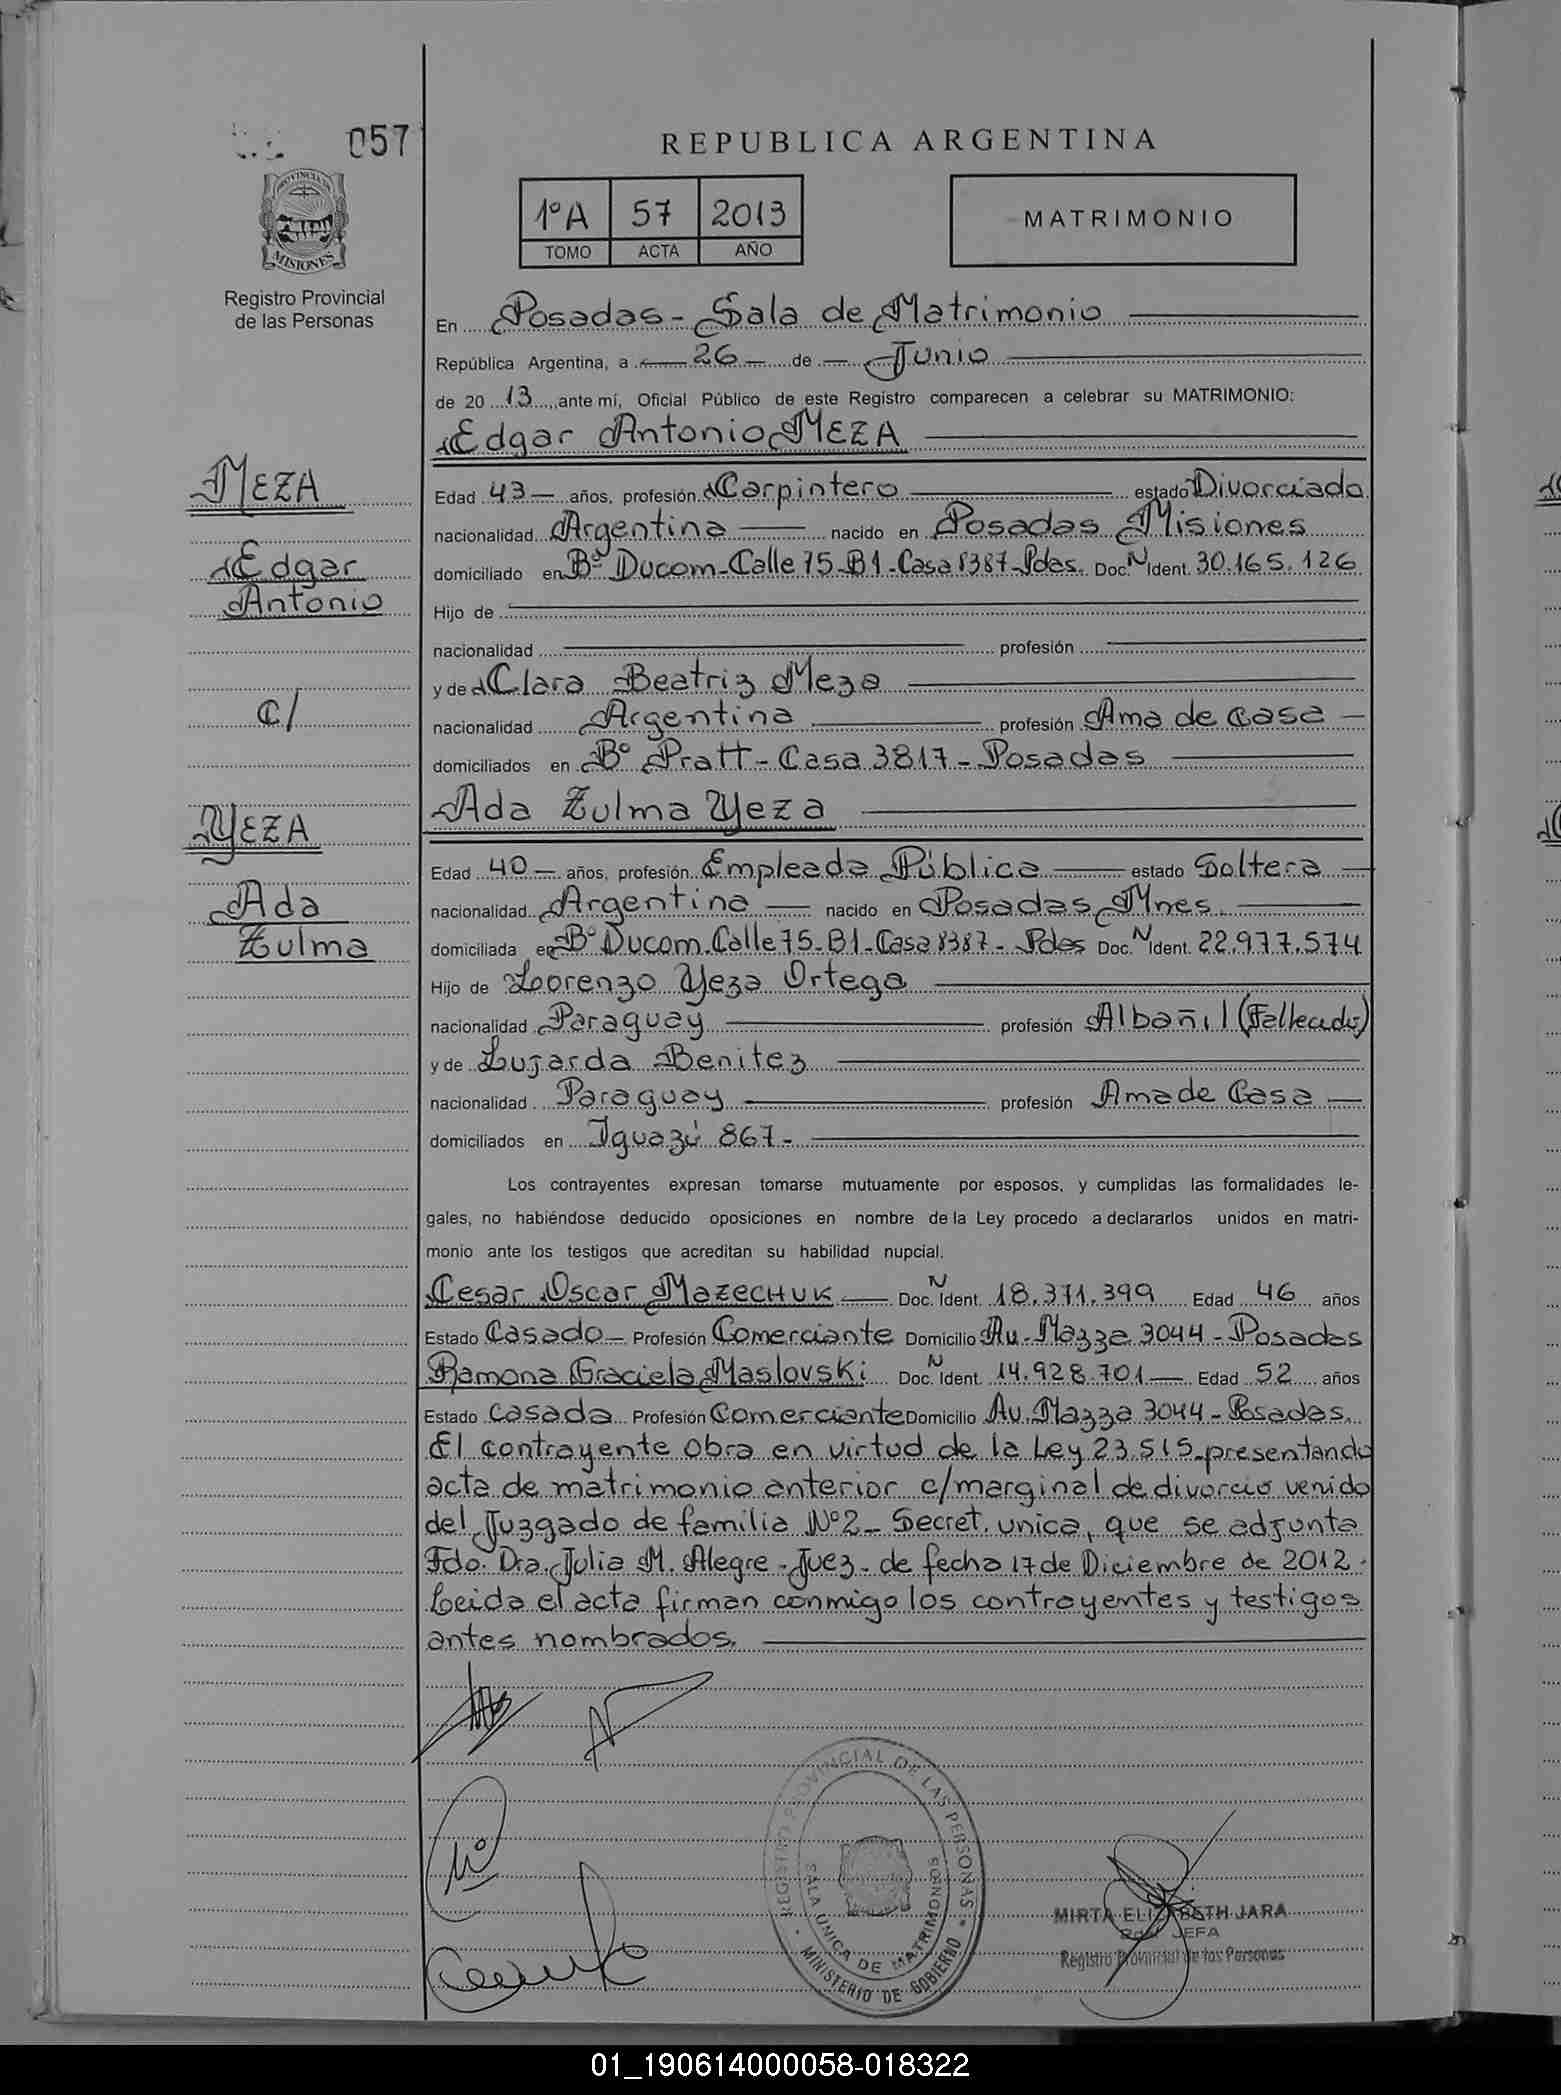 057
REPUBLICA ARGENTINA
1ºA 57 2013
TOMO ACTA AÑO
MATRIMONIO
PROVINCIA DE
MISIONES
Registro Provincial
de las Personas
En Posadas - Sala de Matrimonio
República Argentina, a 26 de Junio
de 20 13 ,ante mí, Oficial Público de este Registro comparecen a celebrar su MATRIMONIO:
Edgar Antonio MEZA
MEZA
Edgar
Antonio
c/
YEZA
Ada
Zulma
Edad 43 años, profesión Carpintero estado Divorciado
nacionalidad Argentina nacido en Posadas Misiones
domiciliado en Bº Ducom-Calle 75-B1-Casa 8387-Pdas. Doc. N Ident. 30.165.126
Hijo de
nacionalidad profesión
y de Clara Beatriz Meza
nacionalidad Argentina profesión Ama de casa
domiciliados en Bº Pratt - Casa 3817 - Posadas
Ada Zulma Yeza
Edad 40 años, profesión Empleada Pública estado Soltera
nacionalidad Argentina nacido en Posadas Mnes.
domiciliada en Bº Ducom.Calle 75-B1-Casa 8387-Pdas Doc. N Ident. 22.977.574
Hijo de Lorenzo Yeza Ortega
nacionalidad Paraguay profesión Albañil (Fallecido)
y de Lujarda Benitez
nacionalidad Paraguay profesión Ama de Casa
domiciliados en Iguazú 867-
Los contrayentes expresan tomarse mutuamente por esposos, y cumplidas las formalidades le-
gales, no habiéndose deducido oposiciones en nombre de la Ley procedo a declararlos unidos en matri-
monio ante los testigos que acreditan su habilidad nupcial.
Cesar Oscar MAZECHUK Doc. N Ident. 18.371.399 Edad 46 años
Estado Casado Profesión Comerciante Domicilio Av. Mazza 3044 - Posadas
Ramona Graciela Maslovski Doc. N Ident. 14.928.701 Edad 52 años
Estado Casada Profesión Comerciante Domicilio Av. Mazza 3044 - Posadas.
El contrayente obra en virtud de la Ley 23.515 presentando
acta de matrimonio anterior c/marginal de divorcio venido
del Juzgado de familia Nº2 - Secret. unica, que se adjunta
Fdo. Dra. Julia M. Alegre - Juez - de fecha 17 de Diciembre de 2012.
Leida el acta firman conmigo los contrayentes y testigos
antes nombrados.
REGISTRO PROVINCIAL DE LAS PERSONAS
SALA UNICA DE MATRIMONIOS
MINISTERIO DE GOBIERNO
MIRTA ELIZABETH JARA
JEFA
Registro Provincial de las Personas
01_190614000058-018322